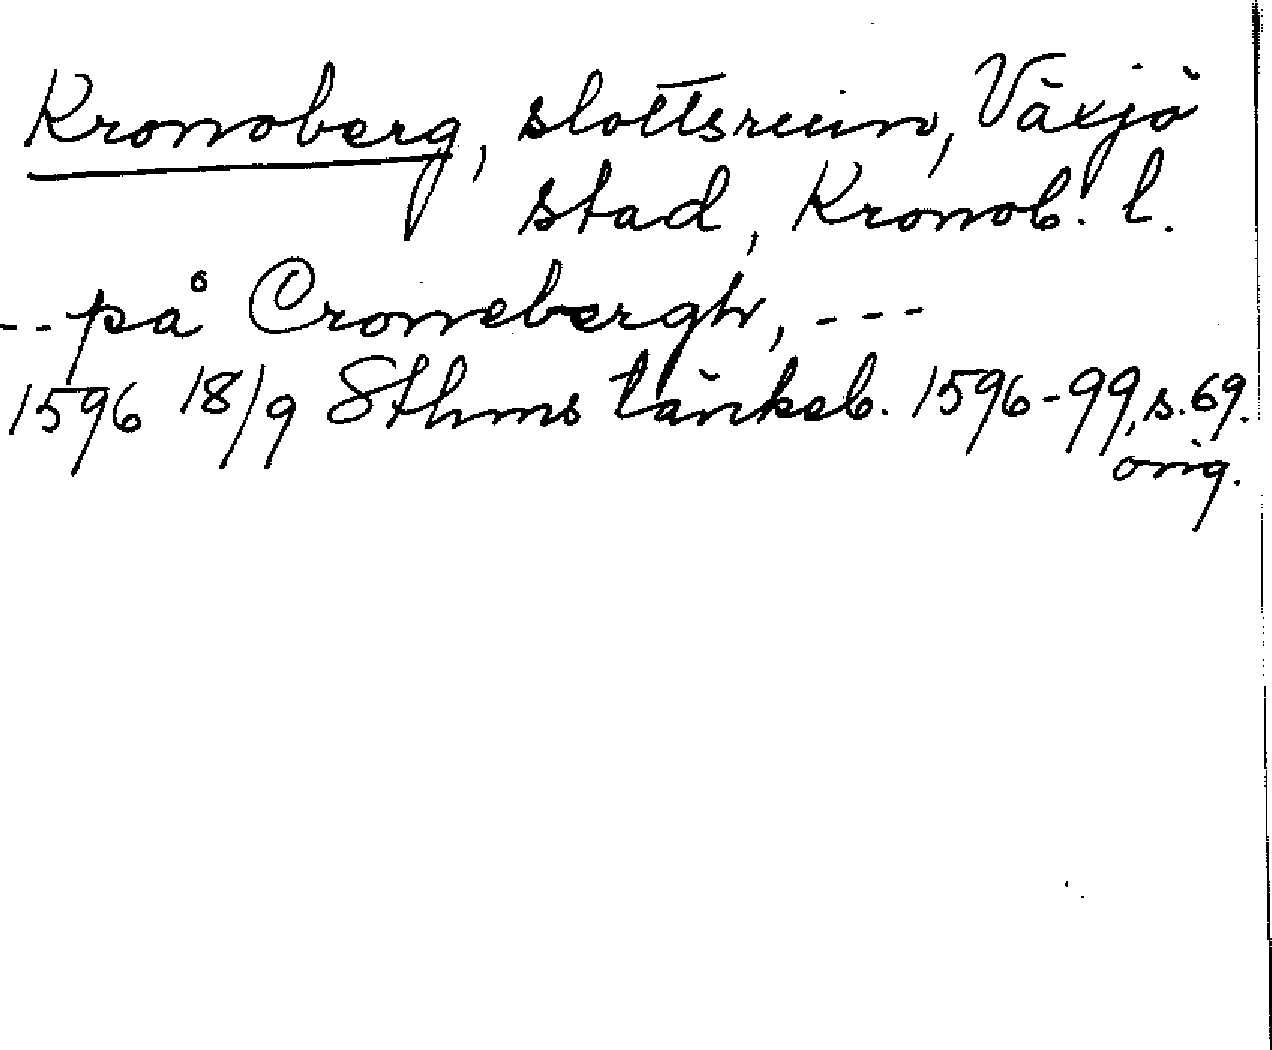 Kronoberg, slottsruin, Växjö
stad, Kronob. l.
-- på Cronebergh, ---
1596 18/9 Sthms tänkeb. 1596-99, s. 69.
orig.